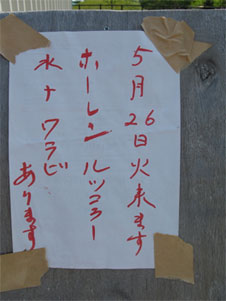 5月26日火来ます
ホーレン ルッコラー
水ナ ワラビ
あります